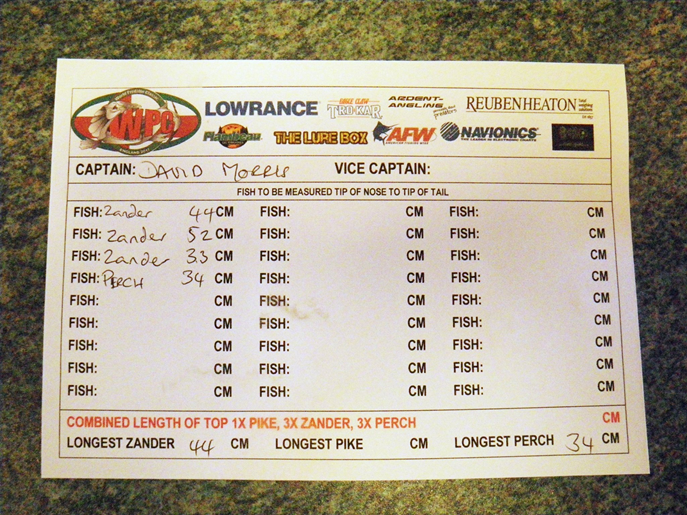 WPC
LOWRANCE
EAGLE CLAW
TRO·KAR
ARDENT-ANGLING
REUBENHEATON
THE LURE BOX
AFW
AMERICAN FISHING WIRE
NAVIONICS
THE LEADER IN ELECTRONIC CHARTS
CAPTAIN: DAVID MORRIS VICE CAPTAIN:
FISH TO BE MEASURED TIP OF NOSE TO TIP OF TAIL
FISH: Zander 44 CM FISH: CM FISH: CM
FISH: Zander 52 CM FISH: CM FISH: CM
FISH: Zander 33 CM FISH: CM FISH: CM
FISH: PERCH 34 CM FISH: CM FISH: CM
FISH: CM FISH: CM FISH: CM
FISH: CM FISH: CM FISH: CM
FISH: CM FISH: CM FISH: CM
FISH: CM FISH: CM FISH: CM
FISH: CM FISH: CM FISH: CM
COMBINED LENGTH OF TOP 1X PIKE, 3X ZANDER, 3X PERCH CM
LONGEST ZANDER 44 CM LONGEST PIKE CM LONGEST PERCH 34 CM